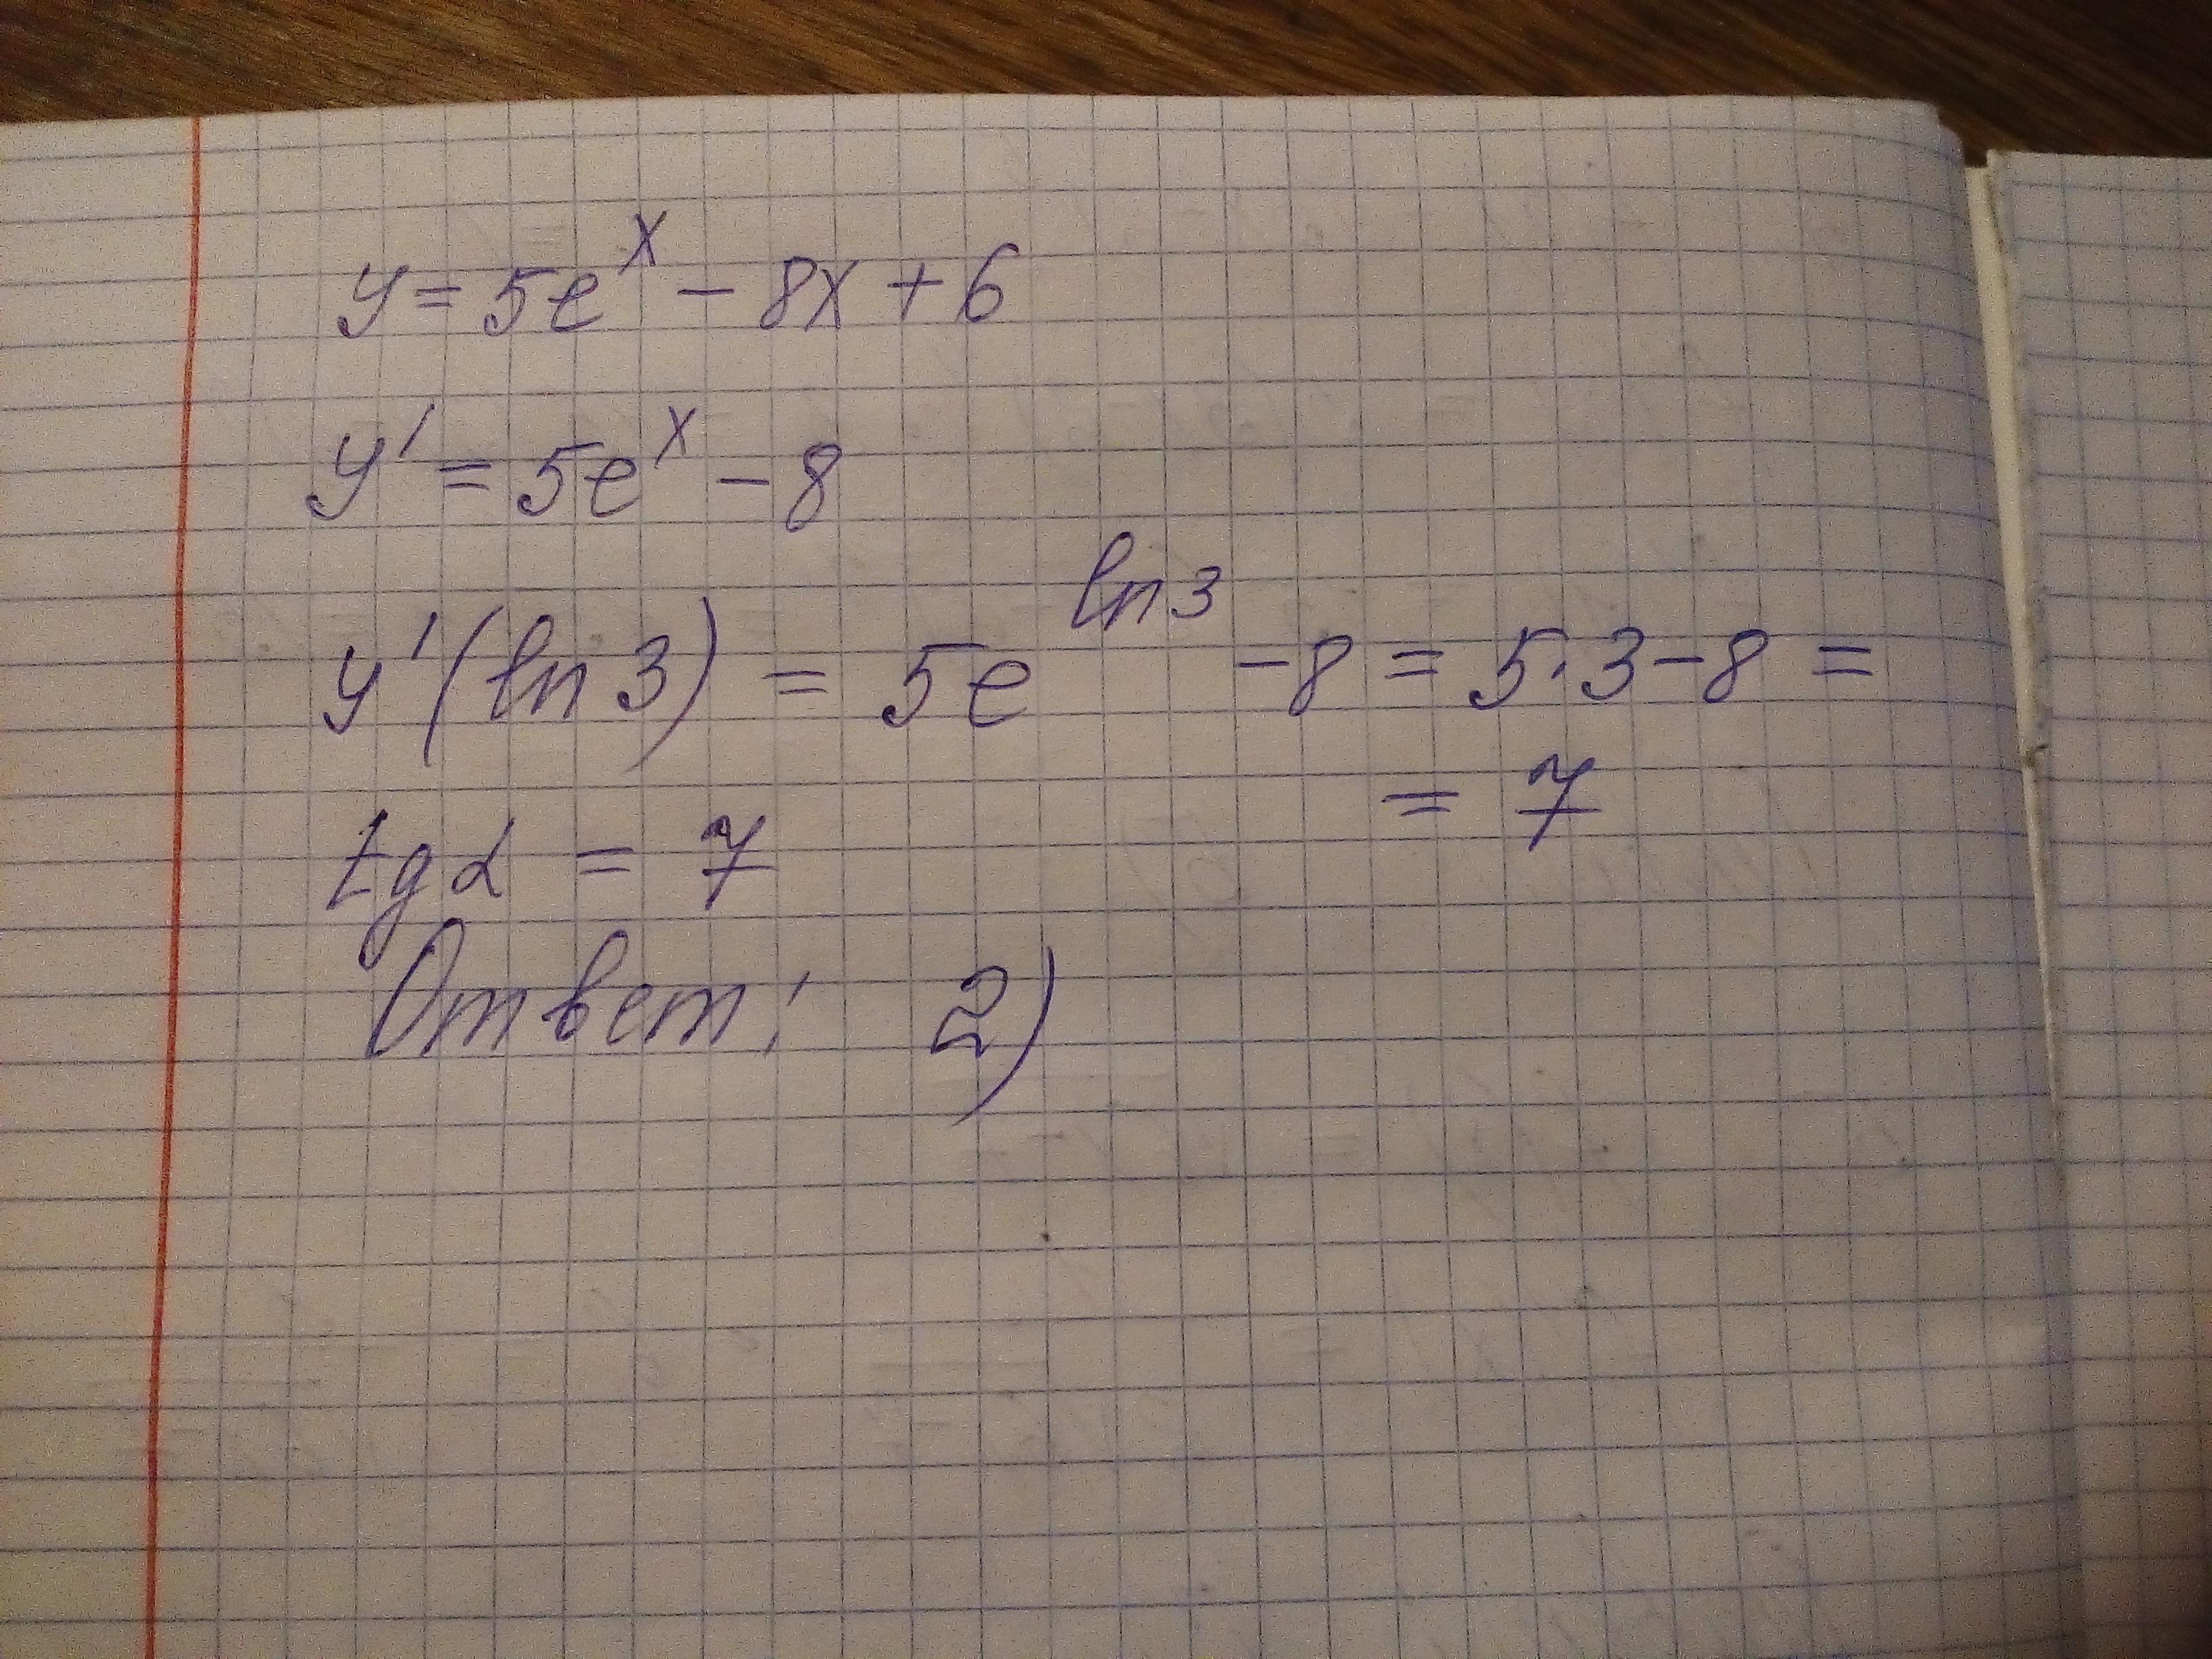 y = 5e^x - 8x + 6
y' = 5e^x - 8
y'(ln 3) = 5e^ln3 - 8 = 5·3 - 8 =
= 7
tg α = 7
Ответ: 2)